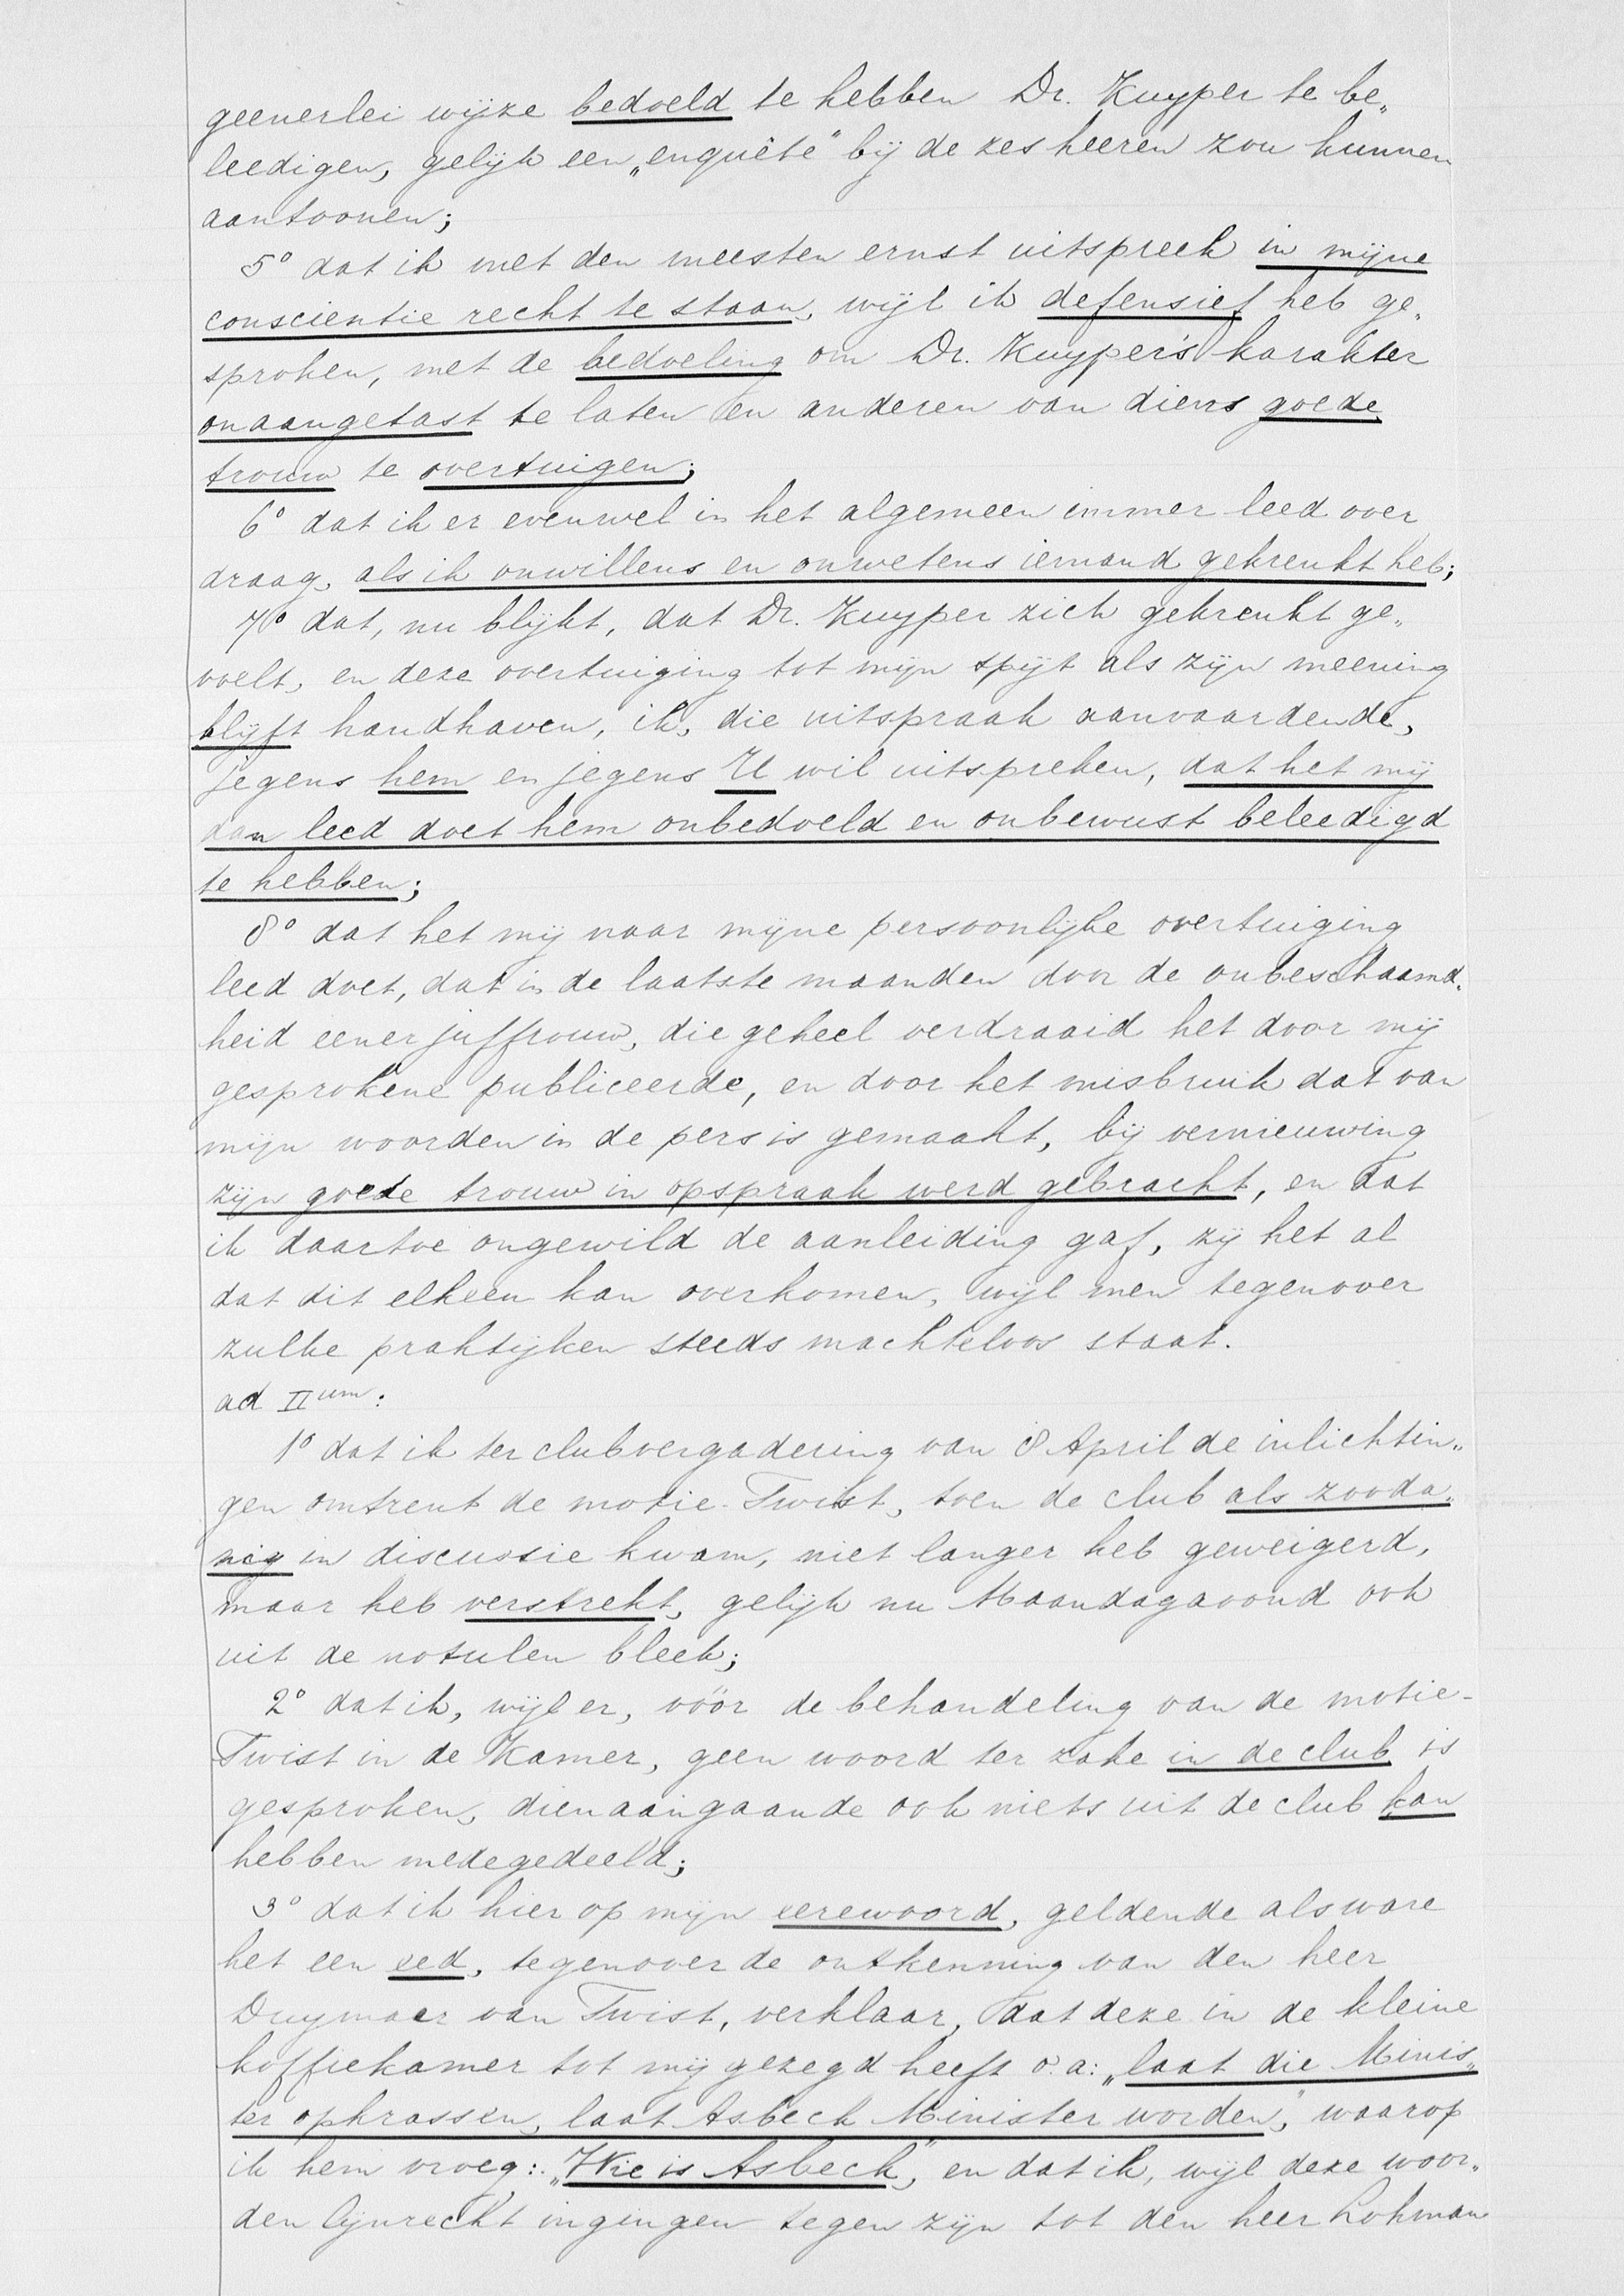 geenerlei wijze bedoeld te hebben Dr. Kuyper te be„
leedigen, gelijk een „enquête" bij de zes heeren zou kunnen
aantoonen;
5° dat ik met den meesten ernst uitspreek in mijne
conscientie recht te staan, wijl ik defensief heb ge„
sproken, met de bedoeling om Dr. Kuyper's karakter
onaangetast te laten en anderen van diens goede
trouw te overtuigen;
6° dat ik er evenwel in het algemeen immer leed over
draag, als ik onwillens en onwetens iemand gekrenkt heb;
7° dat, nu blijkt, dat Dr. Kuyper zich gekrenkt ge„
voelt, en deze overtuiging tot mijn spijt als zijn meening
blijft handhaven, ik, die uitspraak aanvaardende,
jegens hem en jegens U wil uitspreken, dat het mij
dan leed doet hem onbedoeld en onbewust beleedigd
te hebben;
8° dat het mij naar mijne persoonlijke overtuiging
leed doet, dat in de laatste maanden door de onbeschaamd„
heid eener juffrouw, die geheel verdraaid het door mij
gesprokene publiceerde, en door het misbruik dat van
mijn woorden in de pers is gemaakt, bij vernieuwing
zijn goede trouw in opspraak werd gebracht, en dat
ik daartoe ongewild de aanleiding gaf, zij het al
dat dit elkeen kan overkomen, wijl men tegenover
zulke praktijken steeds machteloos staat.
ad II um:
1° dat ik ter clubvergadering van 8 April de inlichtin„
gen omtrent de motie-Twist, toen de club als zooda„
nig in discussie kwam, niet langer heb geweigerd,
maar heb verstrekt, gelijk nu Maandagavond ook
uit de notulen bleek;
2° dat ik, wijl er, vóór de behandeling van de motie-
Twist in de Kamer, geen woord ter zake in de club is
gesproken, dienaangaande ook niets uit de club kan
hebben medegedeeld;
3° dat ik hier op mijn eerewoord, geldende als ware
het een eed, tegenover de ontkenning van den heer
Duymaer van Twist, verklaar, dat deze in de kleine
koffiekamer tot mij gezegd heeft o.a: „laat die Minis„
ter opkrassen, laat Asbeck Minister worden," waarop
ik hem vroeg: „Wie is Asbeck", en dat ik, wijl deze woor„
den lijnrecht ingingen tegen zijn tot den heer Lohman